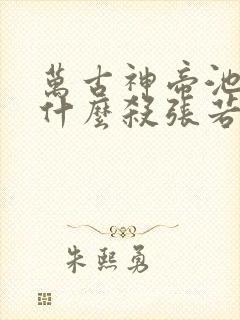 萬古神帝池
什麼殺張若
朱熙勇